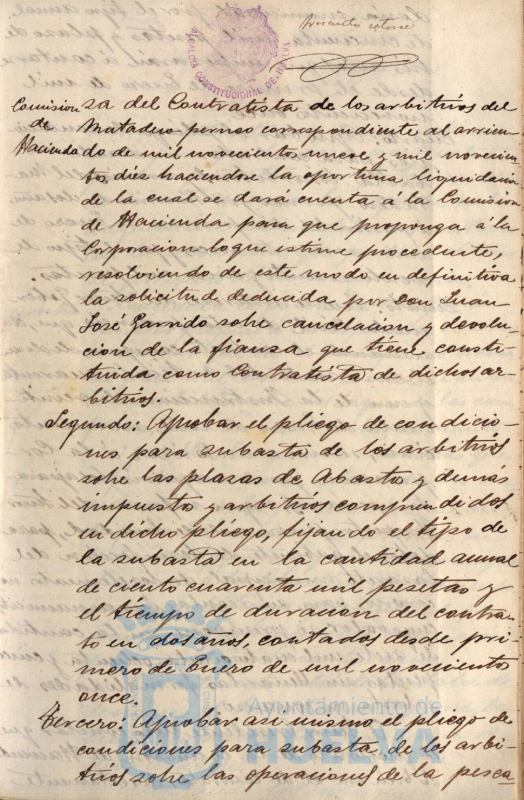 ALCALDIA CONSTITUCIONAL DE HUELVA
Comision
de
Hacienda
za del Contratista de los arbitrios del
Matadero perneo correspondiente al arrien-
do de mil novecientos nueve y mil novecien-
tos diez haciendose la oportuna liquidacion
de la cual se dará cuenta á la Comision
de Hacienda para que proponga á la
Corporacion lo que estime procedente,
resolviendo de este modo en definitiva
la solicitud deducida por Don Juan
José Garrido sobre cancelacion y devolu-
cion de la fianza que tiene consti-
tuida como Contratista de dichos ar-
bitrios.
Segundo: Aprobar el pliego de condicio-
nes para subasta de los arbitrios
sobre las plazas de Abasto y demás
impuesto y arbitrios comprendidos
en dicho pliego, fijando el tipo de
la subasta en la cantidad anual
de ciento cuarenta mil pesetas y
el tiempo de duracion del contra-
to en dos años, contados desde pri-
mero de Enero de mil novecientos
once.
Tercero: Aprobar asi mismo el pliego de
condiciones para subasta de los arbi-
trios sobre las operaciones de la pesca
Ayuntamiento de
HUELVA